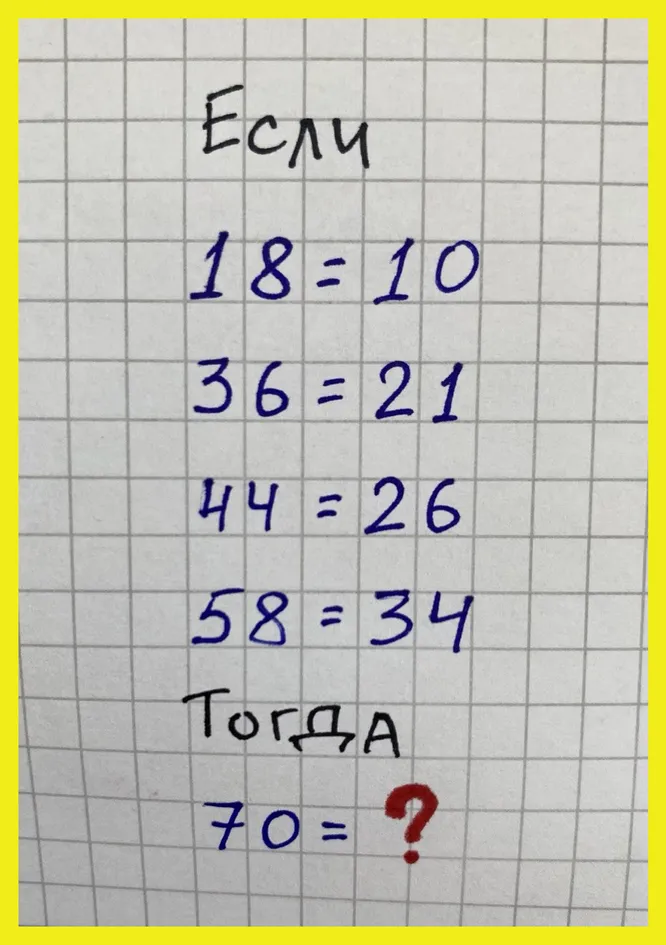 Если
18 = 10
36 = 21
44 = 26
58 = 34
Тогда
70 = ?